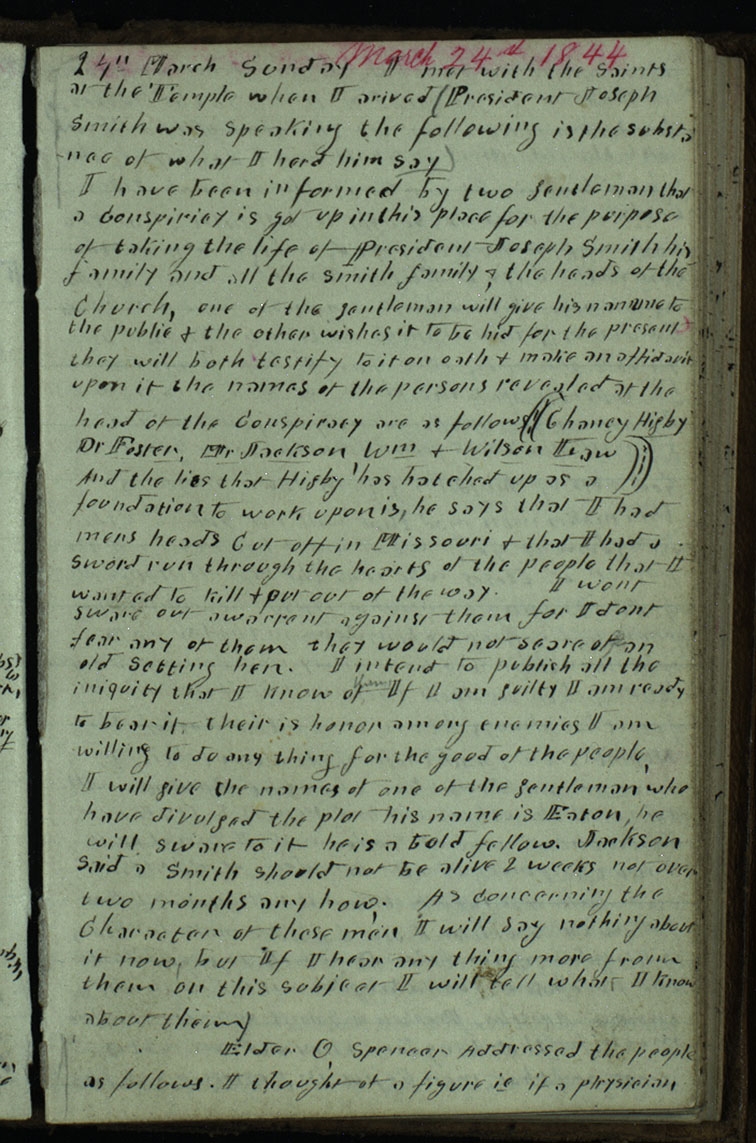 March 24th, 1844
24th March Sunday I met with the Saints
at the Temple when I arived (President Joseph
Smith was speaking the following is the substa
-nce of what I herd him say)
I have been informed by two gentleman that
a conspiricy is got up in this place for the purpose
of taking the life of President Joseph Smith his
family and all the smith family & the heads of the
Church, one of the gentleman will give his namme to
the public & the other wishes it to be hid for the present
they will both testify to it on oath & make an affidavit
upon it the names of the persons revealed at the
head of the conspiracy are as follows ((Chancy Higby
Dr Foster, Mr Jackson Wm & Wilson Law))
And the lies that Higby has hatched up as a
foundation to work upon is, he says that I had
mens heads Cut off in Missouri & that I had a
sword run through the hearts of the people that I
wanted to kill & put out of the way. I wont
sware out a warrent against them for I dont
fear any of them they would not scare of an
old Setting hen. I intend to publish all the
iniquity that I know of them If I am guilty I am ready
to bear it their is honor among enemies I am
willing to do any thing for the good of the people,
I will give the names of one of the gentleman who
have divulged the plot his name is Eaton, he
will sware to it he is a bold fellow. Jackson
Said a Smith should not be alive 2 weeks not over
two months any how. As concerning the
Character of these men I will say nothing about
it now, but If I hear any thing more from
them on this subject I will tell what I know
about them)
Elder O Spencer Addressed the people
as follows. I thought of a figure ie if a physician